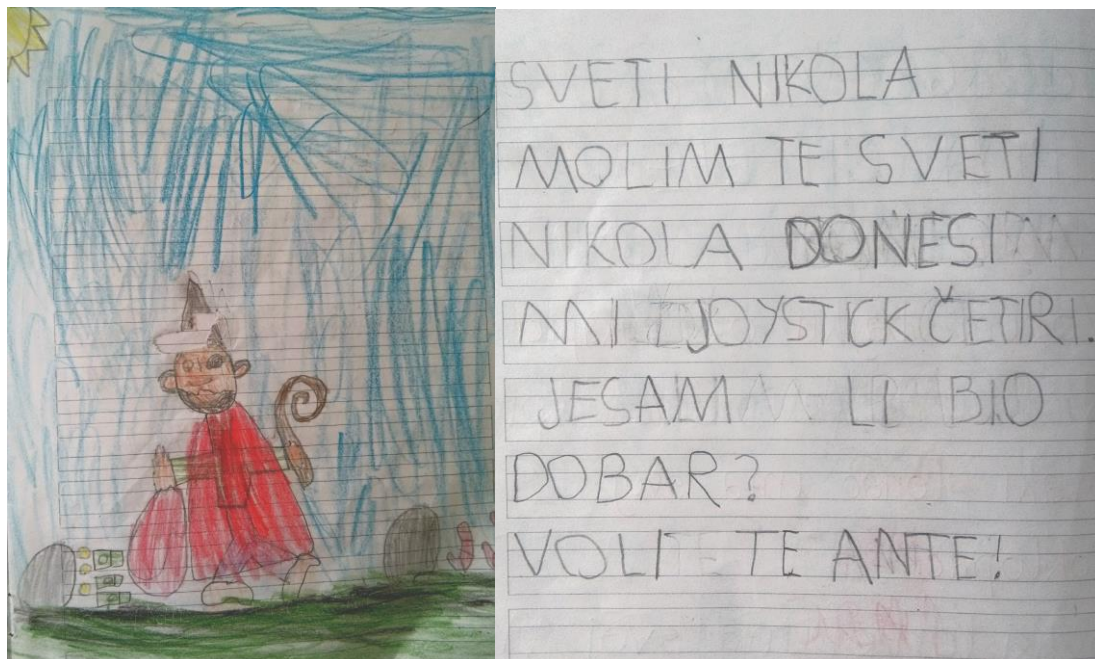 SVETI NIKOLA
MOLIM TE SVETI
NIKOLA DONESI
MI JOYSTICK ČETIRI.
JESAM LI BIO
DOBAR?
VOLI TE ANTE!